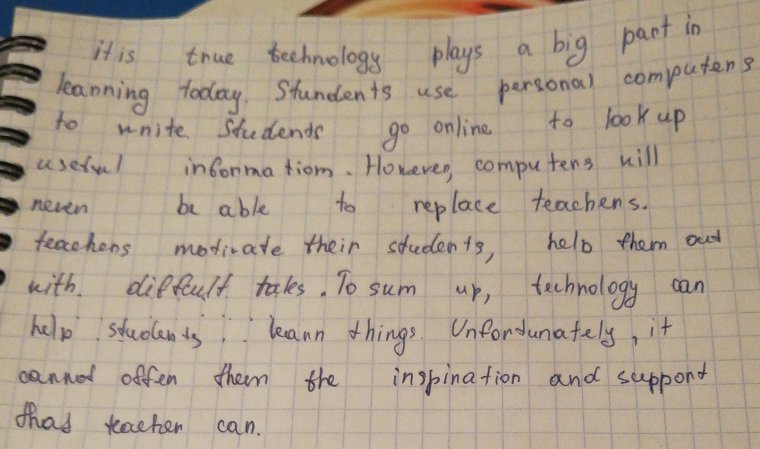 it is true technology plays a big part in
learning today. Stundents use personal computers
to write Students go online to look up
useful information. However, computers will
never be able to replace teachers.
teachers motivate their students, help them out
with. difficult taks. To sum up, technology can
help students learn things. Unfortunately, it
cannot offer them the inspiration and support
that teacher can.